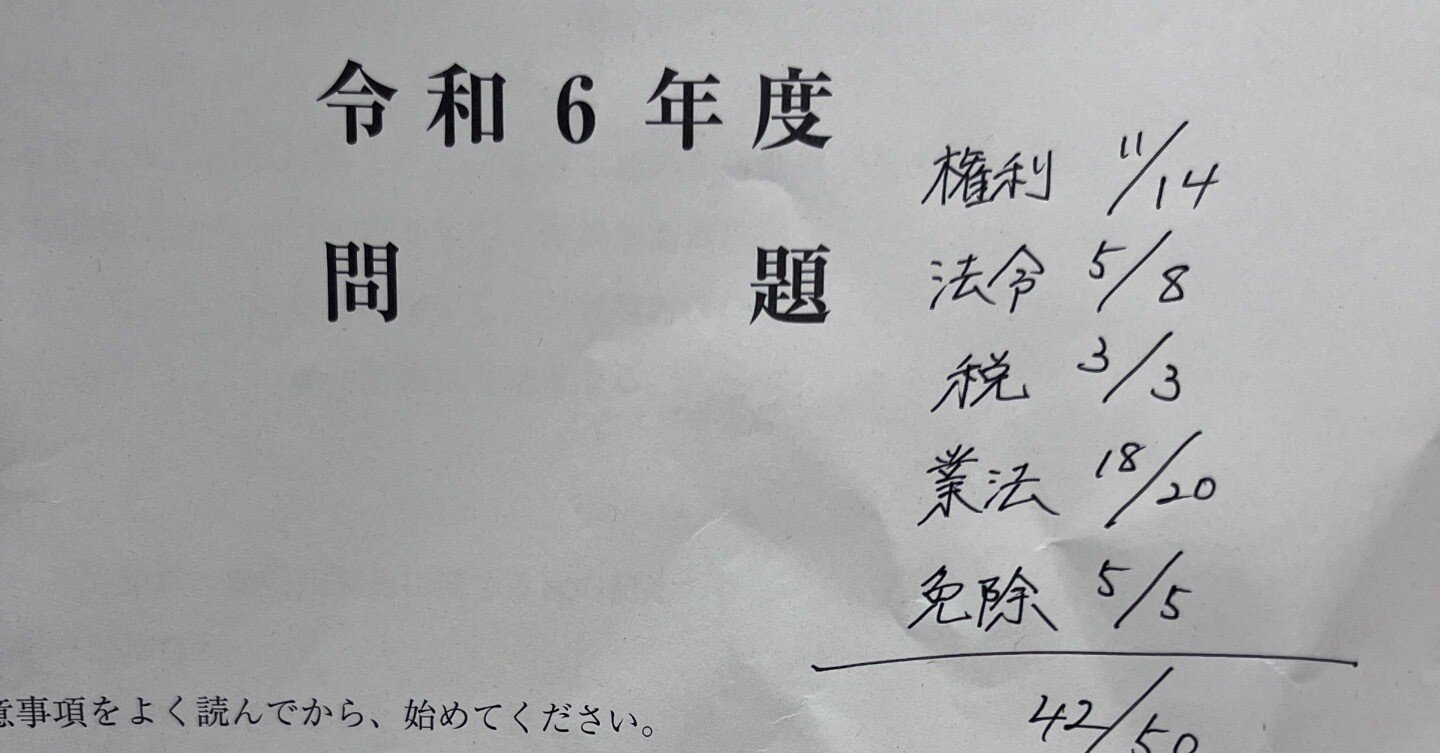 令和6年度
問題
権利 11/14
法令 5/8
税 3/3
業法 18/20
免除 5/5
42/50
意事項をよく読んでから、始めてください。